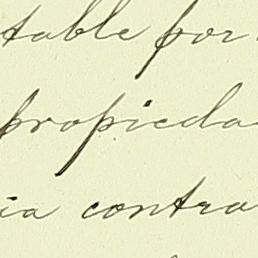 table por
propieda
ia contra